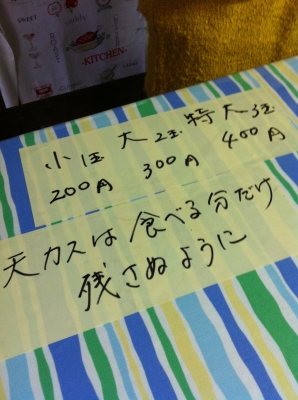 SWEET
-KITCHEN-
小1玉 大2玉 特大3玉
200円 300円 400円
天カスは食べる分だけ
残さぬように